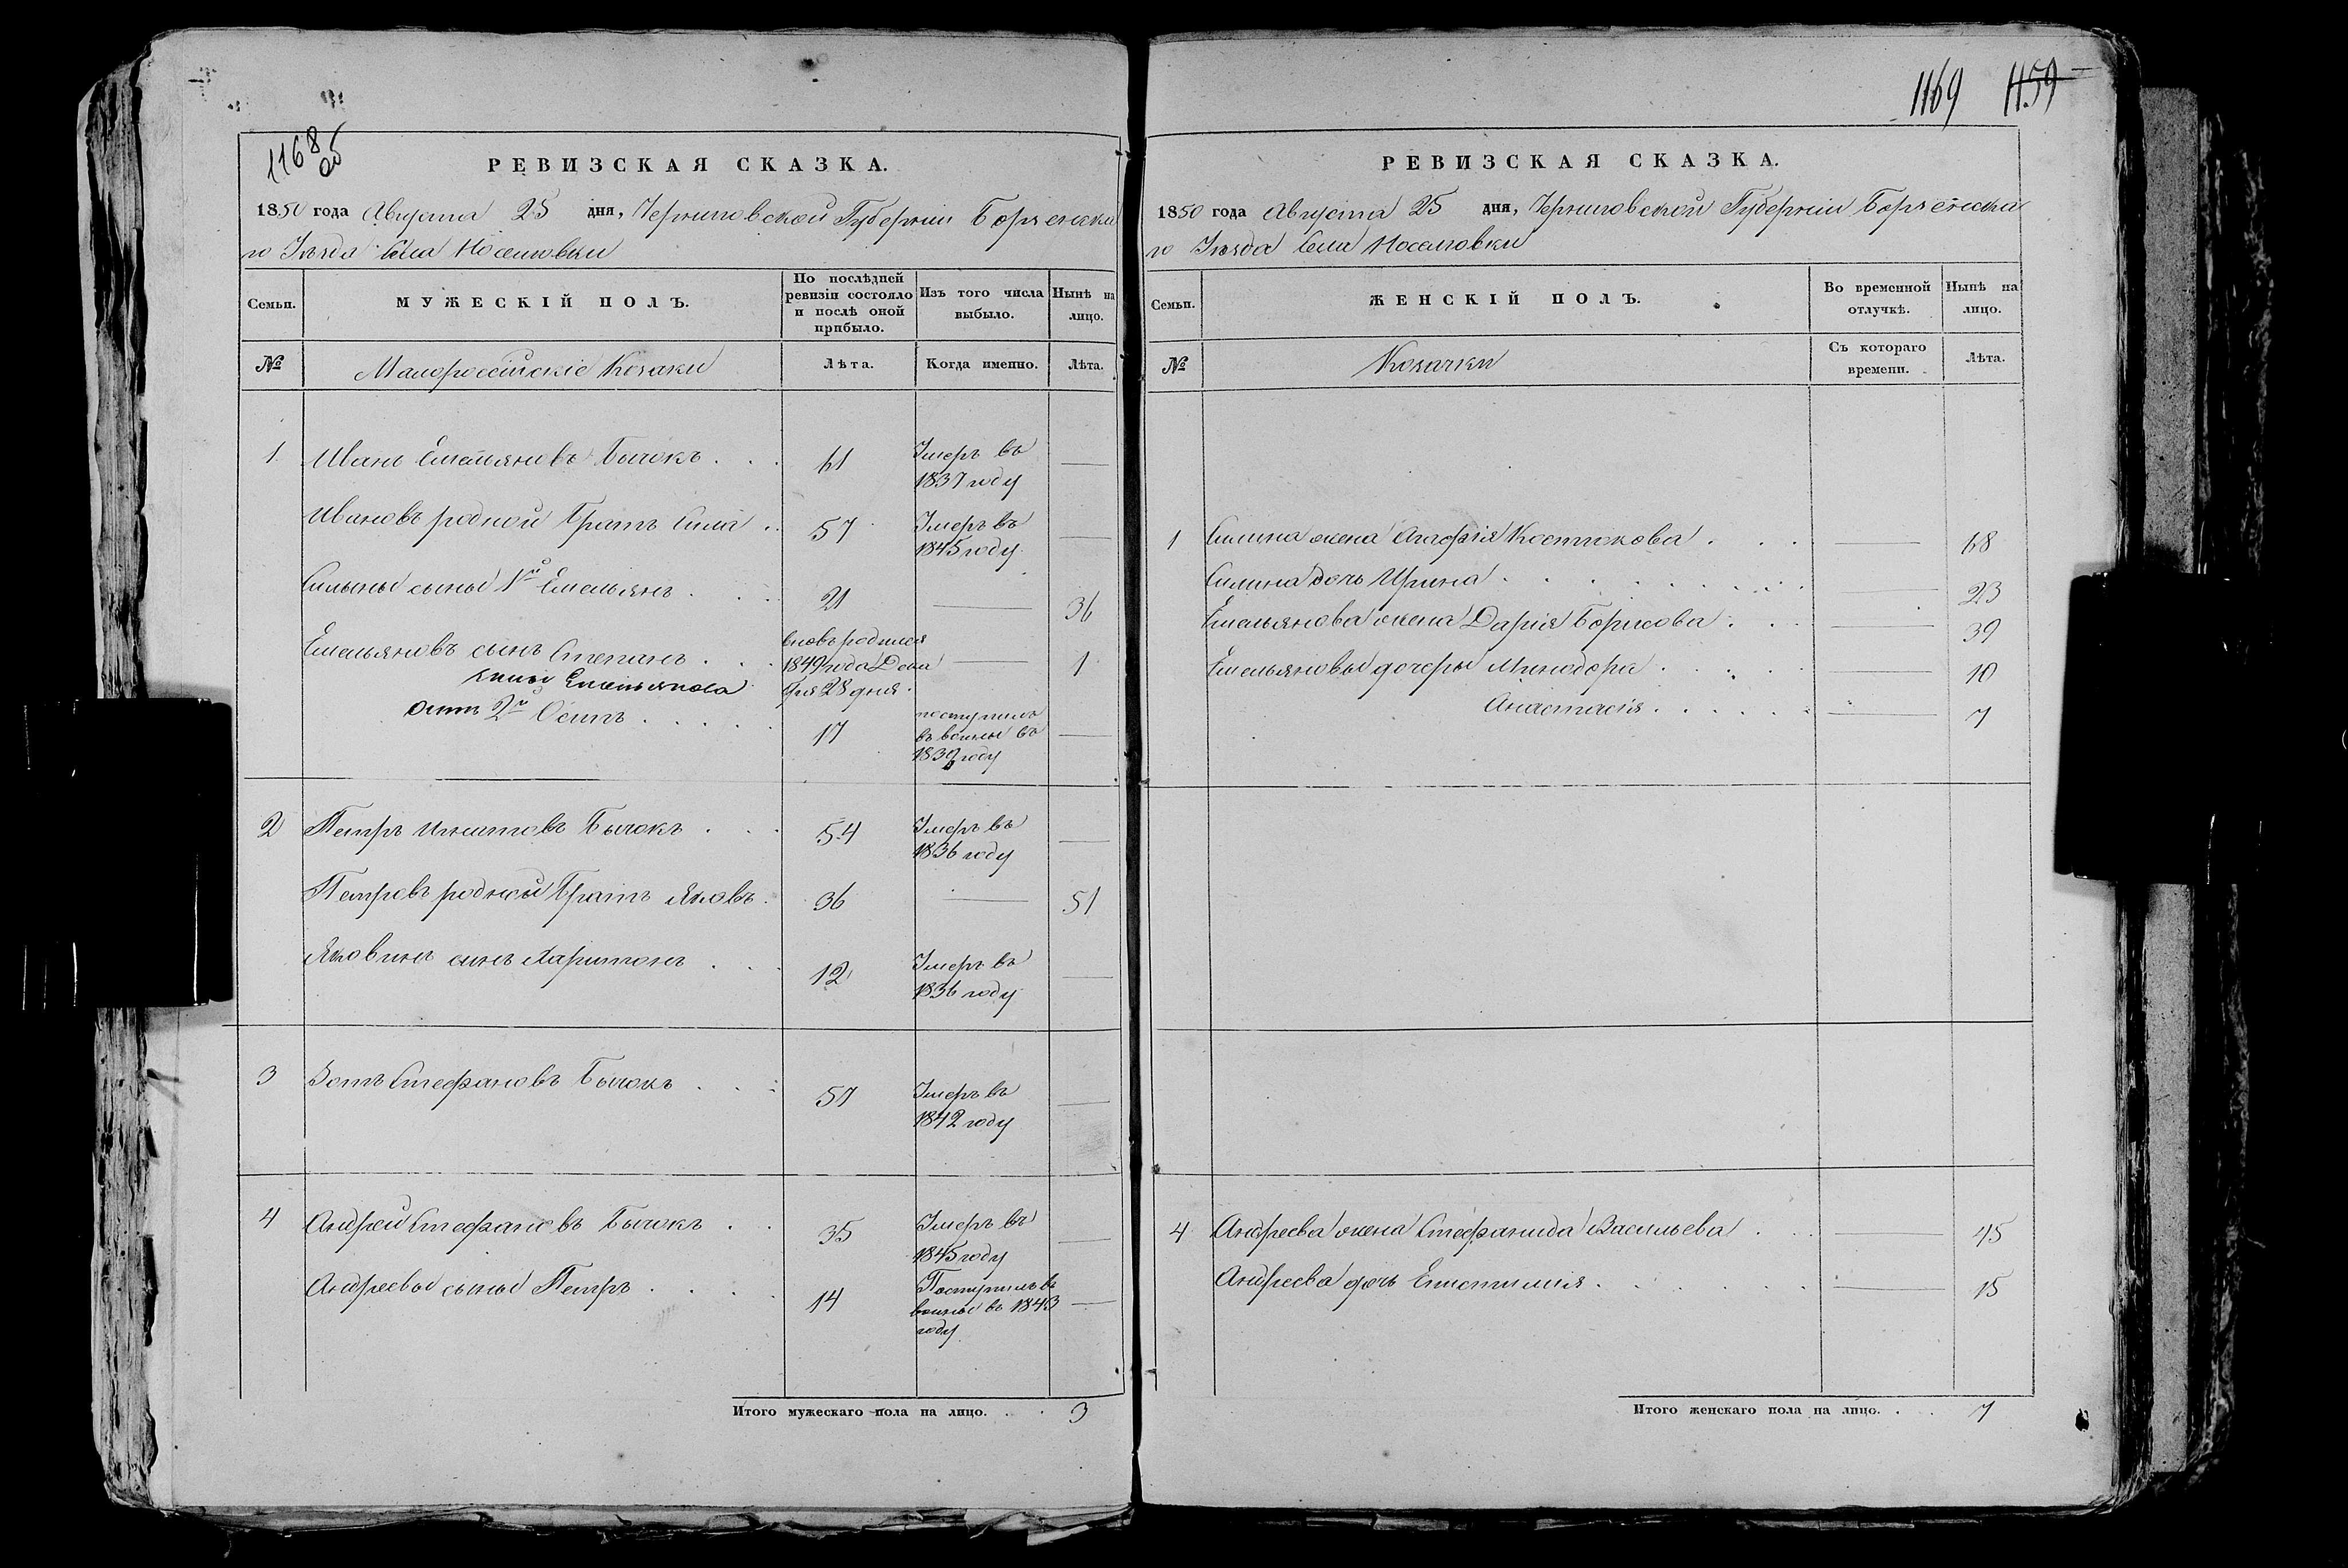 1168 об
РЕВИЗСКАЯ СКАЗКА.
1850 года Августа 25 дня, Черниговской Губерніи Борзенска
го Уѣзда Села Носеловки
Семьи.
МУЖЕСКІЙ ПОЛЪ.
По послѣдней ревизіи состояло и послѣ оной прибыло.
Изъ того числа выбыло.
Нынѣ на лицо.
№
Малороссійскіе Козаки
Лѣта.
Когда именно.
Лѣта.
1 Иванъ Емельяновъ Бычокъ . . . 61 Умеръ въ
1837 году
Ивановъ родной Братъ Сила . . 57 Умеръ въ
1845 году
Силыны сыны 1й Емельянъ . . . 21 — 36
Емельяновъ сынъ Степанъ . . . вновь родился
1849 года Дека — 1
бря 28 дня.
Емельянова
Осипъ 2й Осипъ . . . . . 17 поступилъ
въ воины въ
1839 году
2 Петръ Игнатовъ Бычокъ . . . 54 Умеръ въ
1836 году
Петровъ родной Братъ Яковъ . 36 — 51
Яковинъ сынъ Харитонъ . . . 12 Умеръ въ
1836 году
3 Зотъ Стефановъ Бычокъ . . . 57 Умеръ въ
1842 году
4 Андрей Стефановъ Бычокъ . . 35 Умеръ въ
1845 году
Андреевы сыны Петръ . . . . 14 Поступилъ въ
воины въ 1843
году
Итого мужескаго пола на лицо. . . 3
1169 1159
РЕВИЗСКАЯ СКАЗКА.
1850 года Августа 25 дня, Черниговской Губерніи Борзенска
го Уѣзда Села Носеловки
Семьи.
ЖЕНСКІЙ ПОЛЪ.
Во временной отлучкѣ.
Нынѣ на лицо.
№
Козачки
Съ котораго времени.
Лѣта.
1 Силина жена Агафія Костюкова . . . — 68
Силина дочь Ирина . . . . . — 23
Емельянова жена Дарія Борисова . . . — 39
Емельяновы дочеры Минодора . . . . — 10
Анастасія . . . . . — 7
4 Андреева жена Стефанида Васильева . . . — 45
Андреева дочь Епистимія . . . . . — 15
Итого женскаго пола на лицо. . . 7